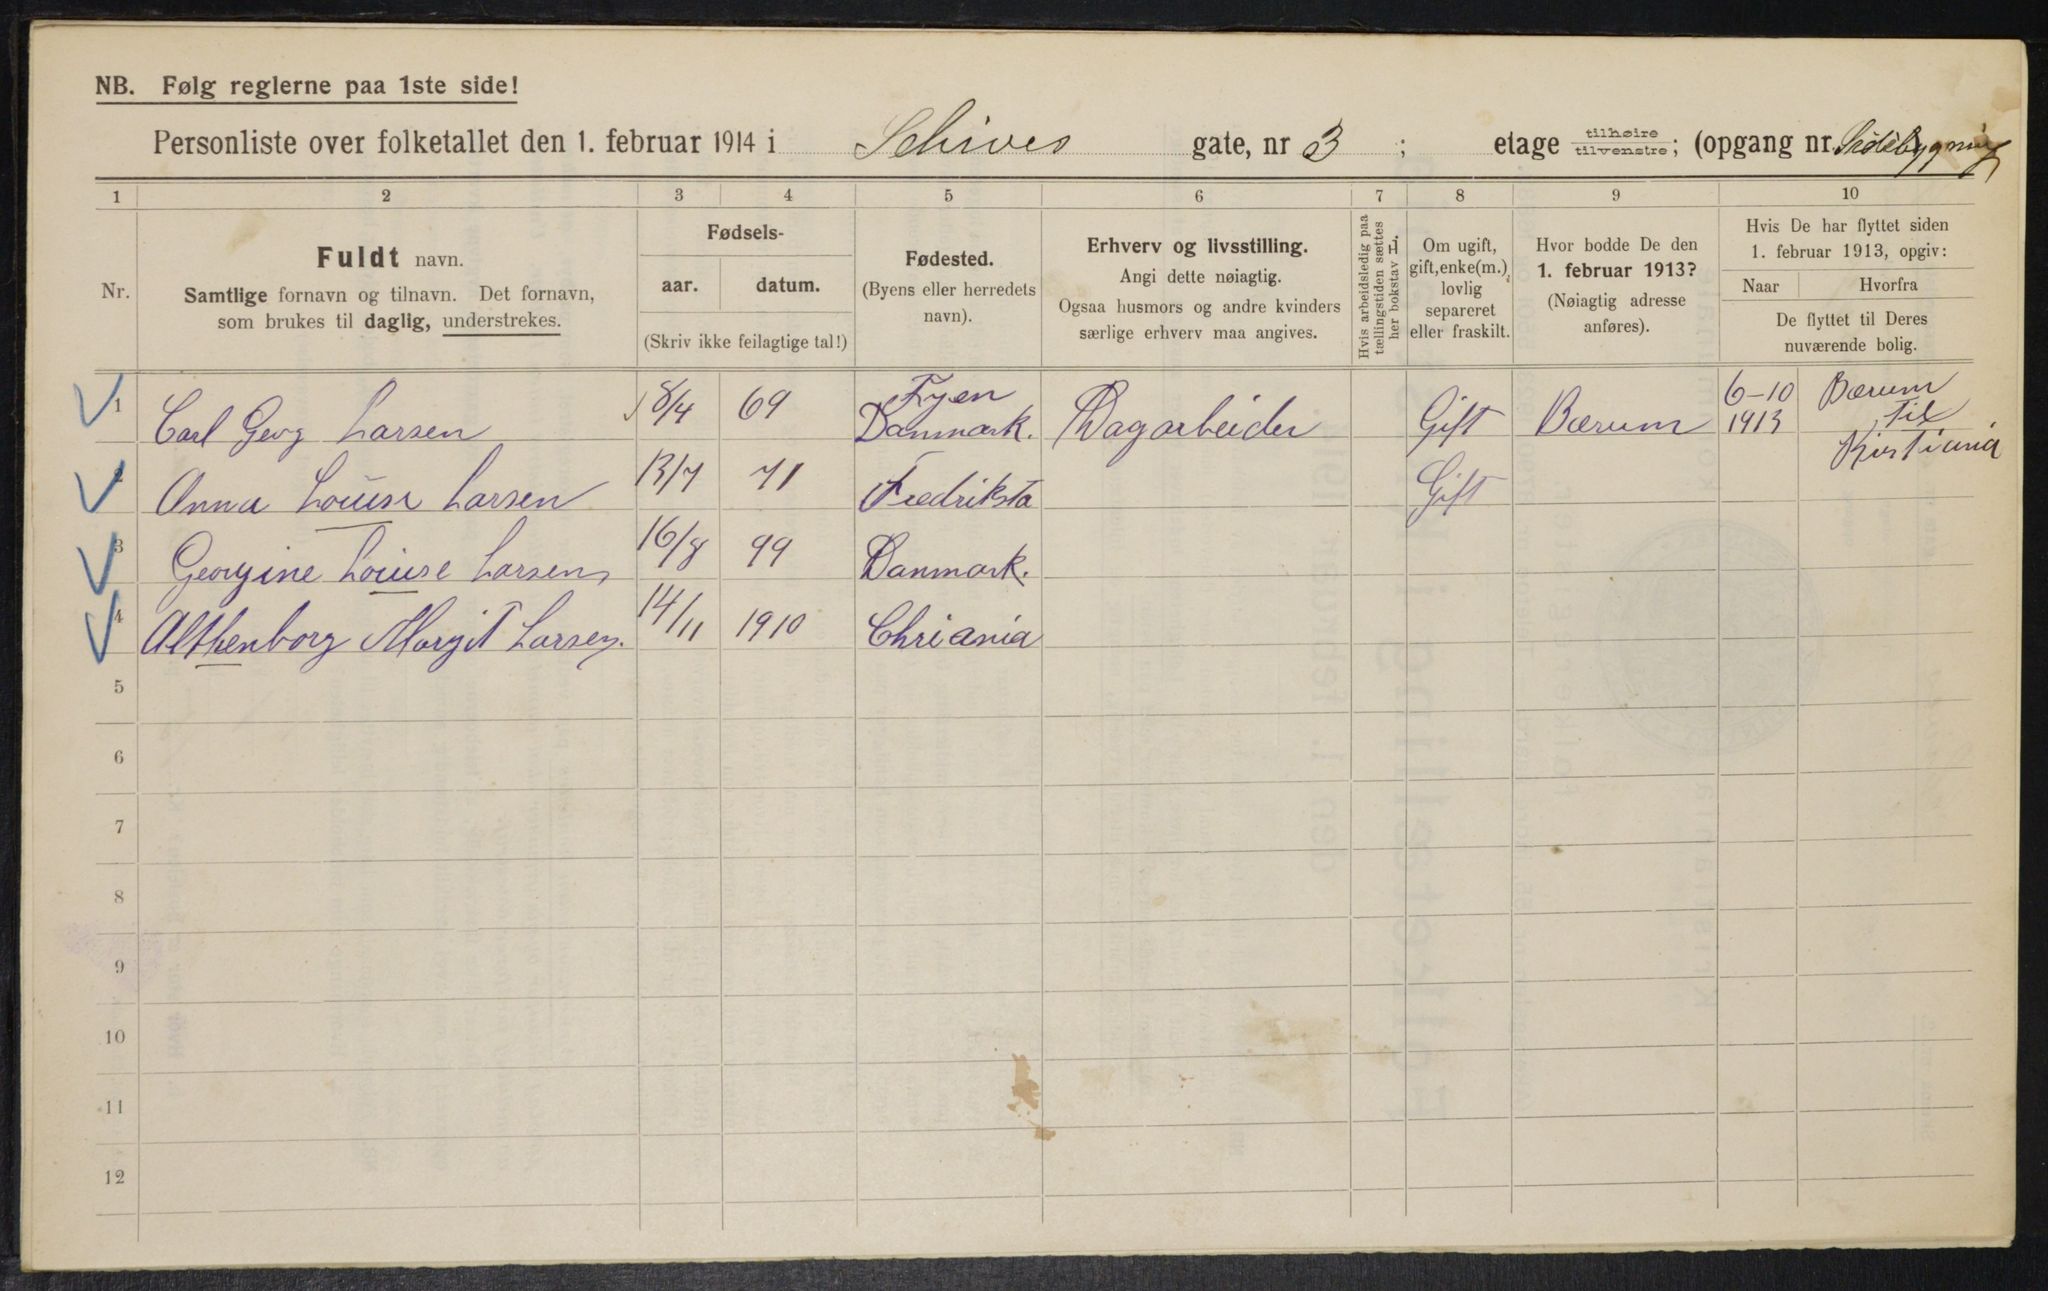 NB. Følg reglerne paa 1ste side!
Personliste over folketallet den 1. februar 1914 i Schives gate, nr 3 ; etage tilhøire tilvenstre; (opgang nr. Sidebygning
1 2 3 4 5 6 7 8 9 10
Nr.
Fuldt navn.
Samtlige fornavn og tilnavn. Det fornavn,
som brukes til daglig, understrekes.
Fødsels-
aar. datum.
(Skriv ikke feilagtige tal!)
Fødested.
(Byens eller herredets
navn).
Erhverv og livsstilling.
Angi dette nøiagtig.
Ogsaa husmors og andre kvinders
særlige erhverv maa angives.
Hvis arbeidsledig paa
tællingstiden sættes
her bokstav L.
Om ugift,
gift, enke(m.),
lovlig
separeret
eller fraskilt.
Hvor bodde De den
1. februar 1913?
(Nøiagtig adresse
anføres).
Hvis De har flyttet siden
1. februar 1913, opgiv:
Naar Hvorfra
De flyttet til Deres
nuværende bolig.
1 Carl Georg Larsen 8/4 69 Fyen Danmark. Dagarbeider Gift Bærum 6-10 1913 Bærum til Kristiania
2 Anna Louise Larsen 13/7 71 Fredriksta Gift
3 Georgine Louise Larsen 16/8 99 Danmark.
4 Althenborg Margit Larsen. 14/11 1910 Chriania
5
6
7
8
9
10
11
12